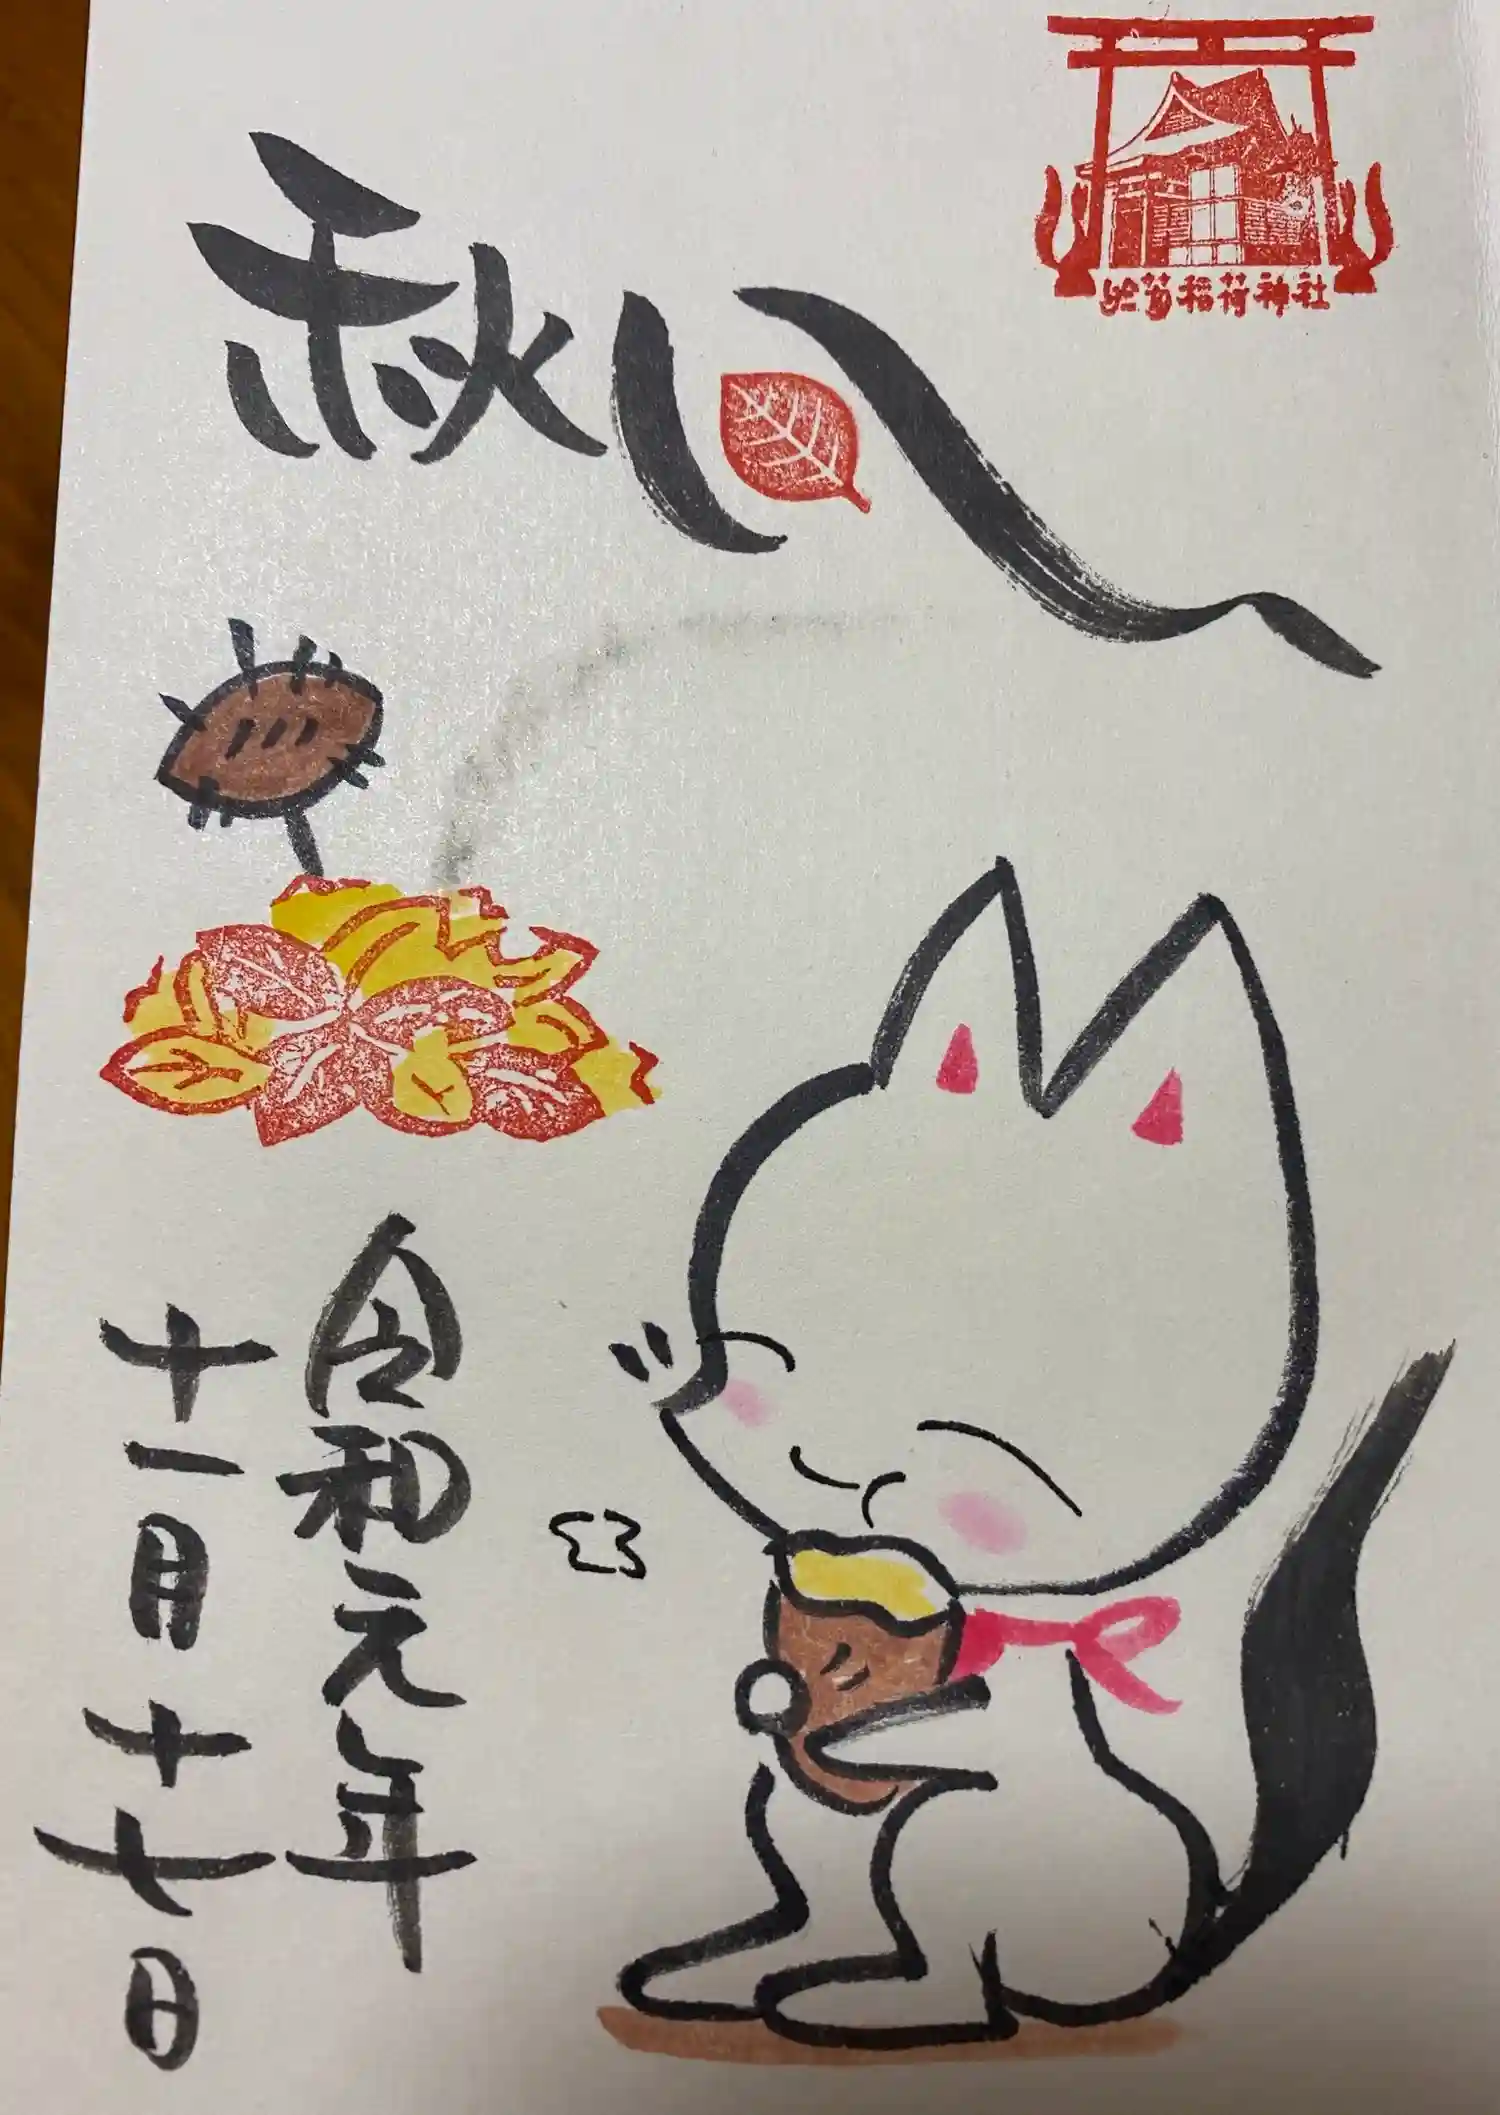 於菊稲荷神社
秋
令和元年
十一月十七日